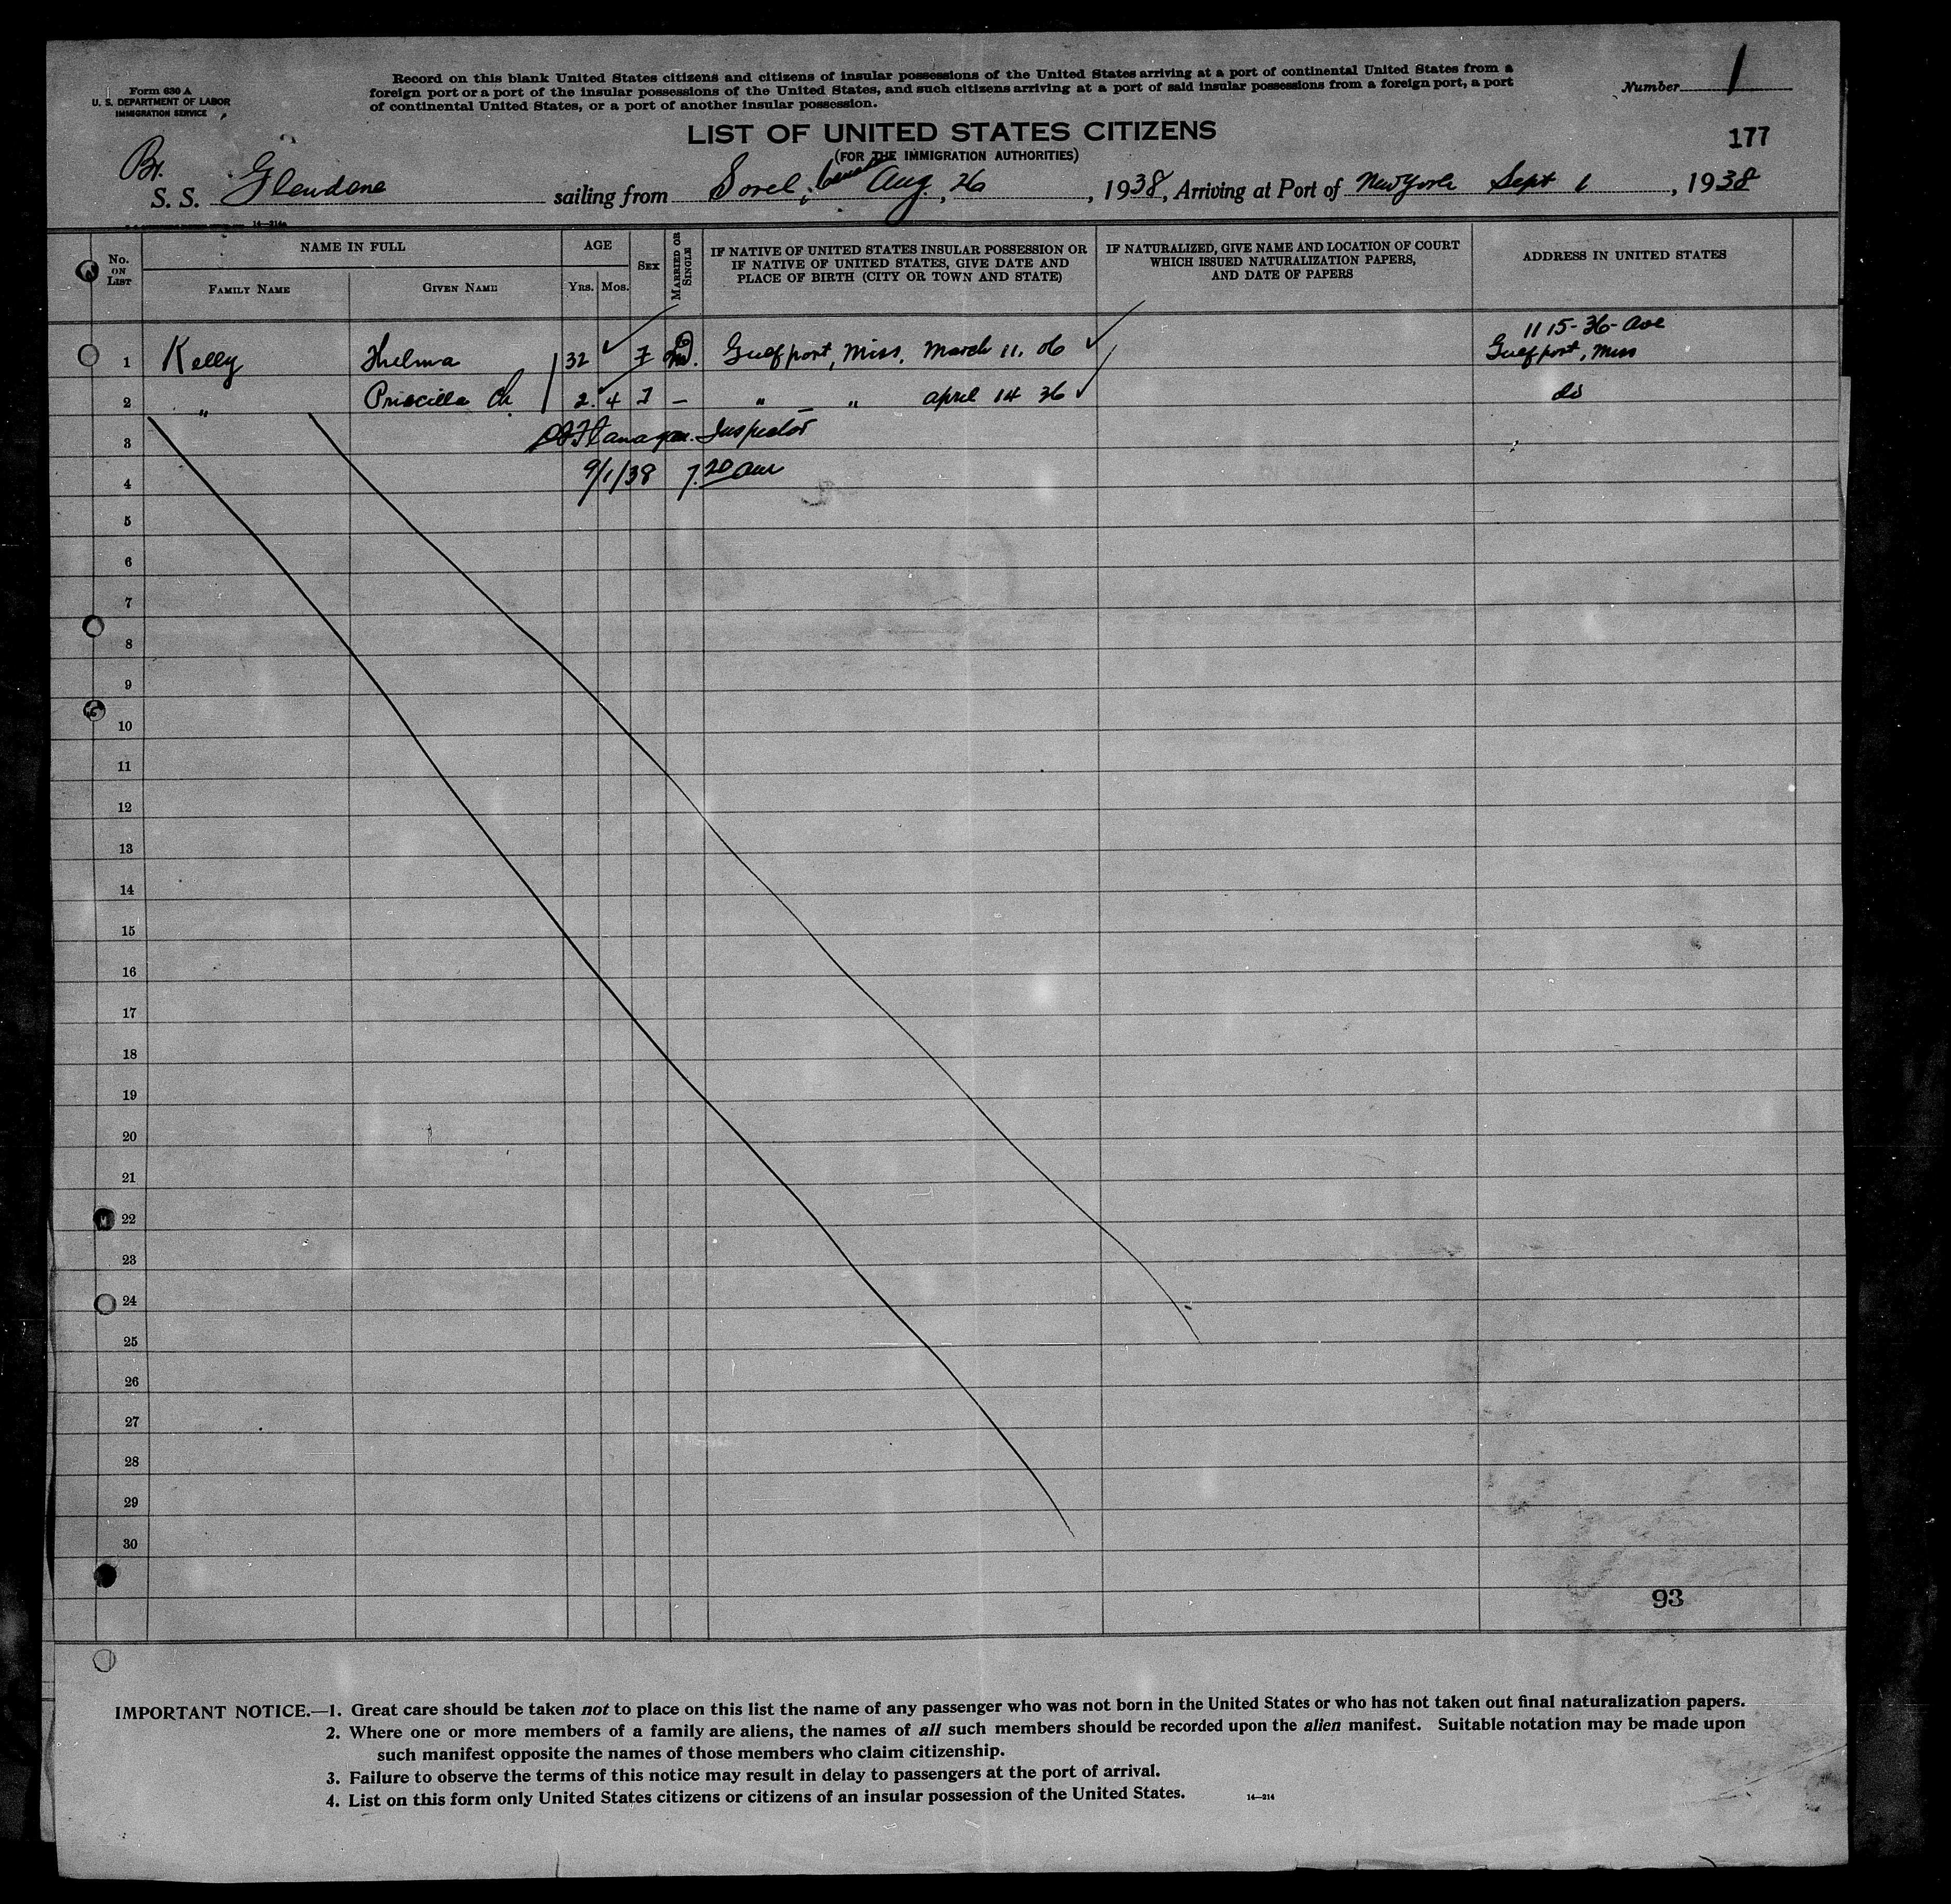 Form 630 A
U. S. DEPARTMENT OF LABOR
IMMIGRATION SERVICE
Record on this blank United States citizens and citizens of insular possessions of the United States arriving at a port of continental United States from a
foreign port or a port of the insular possessions of the United States, and such citizens arriving at a port of said insular possessions from a foreign port, a port
of continental United States, or a port of another insular possession.
Number 1
LIST OF UNITED STATES CITIZENS
(FOR THE IMMIGRATION AUTHORITIES)
177
Br.
S. S. Glendene sailing from Sorel, Aug. 26, 1938, Arriving at Port of New York Sept 1, 1938
14—214a
No. ON LIST
NAME IN FULL
FAMILY NAME
GIVEN NAME
AGE
YRS.
MOS.
SEX
MARRIED OR SINGLE
IF NATIVE OF UNITED STATES INSULAR POSSESSION OR
IF NATIVE OF UNITED STATES, GIVE DATE AND
PLACE OF BIRTH (CITY OR TOWN AND STATE)
IF NATURALIZED, GIVE NAME AND LOCATION OF COURT
WHICH ISSUED NATURALIZATION PAPERS,
AND DATE OF PAPERS
ADDRESS IN UNITED STATES
1115-36-Ave
1 Kelly Thelma 32 F Gulfport, Miss. March 11. 06 Gulfport, Miss
2 " Priscilla Ch 2 4 F — " — " april 14 36 do
3 Flanagan. Inspector
4 9/1/38 7.20 am
5
6
7
8
9
10
11
12
13
14
15
16
17
18
19
20
21
22
23
24
25
26
27
28
29
30
93
IMPORTANT NOTICE.—1. Great care should be taken not to place on this list the name of any passenger who was not born in the United States or who has not taken out final naturalization papers.
2. Where one or more members of a family are aliens, the names of all such members should be recorded upon the alien manifest. Suitable notation may be made upon
such manifest opposite the names of those members who claim citizenship.
3. Failure to observe the terms of this notice may result in delay to passengers at the port of arrival.
4. List on this form only United States citizens or citizens of an insular possession of the United States.
14—214